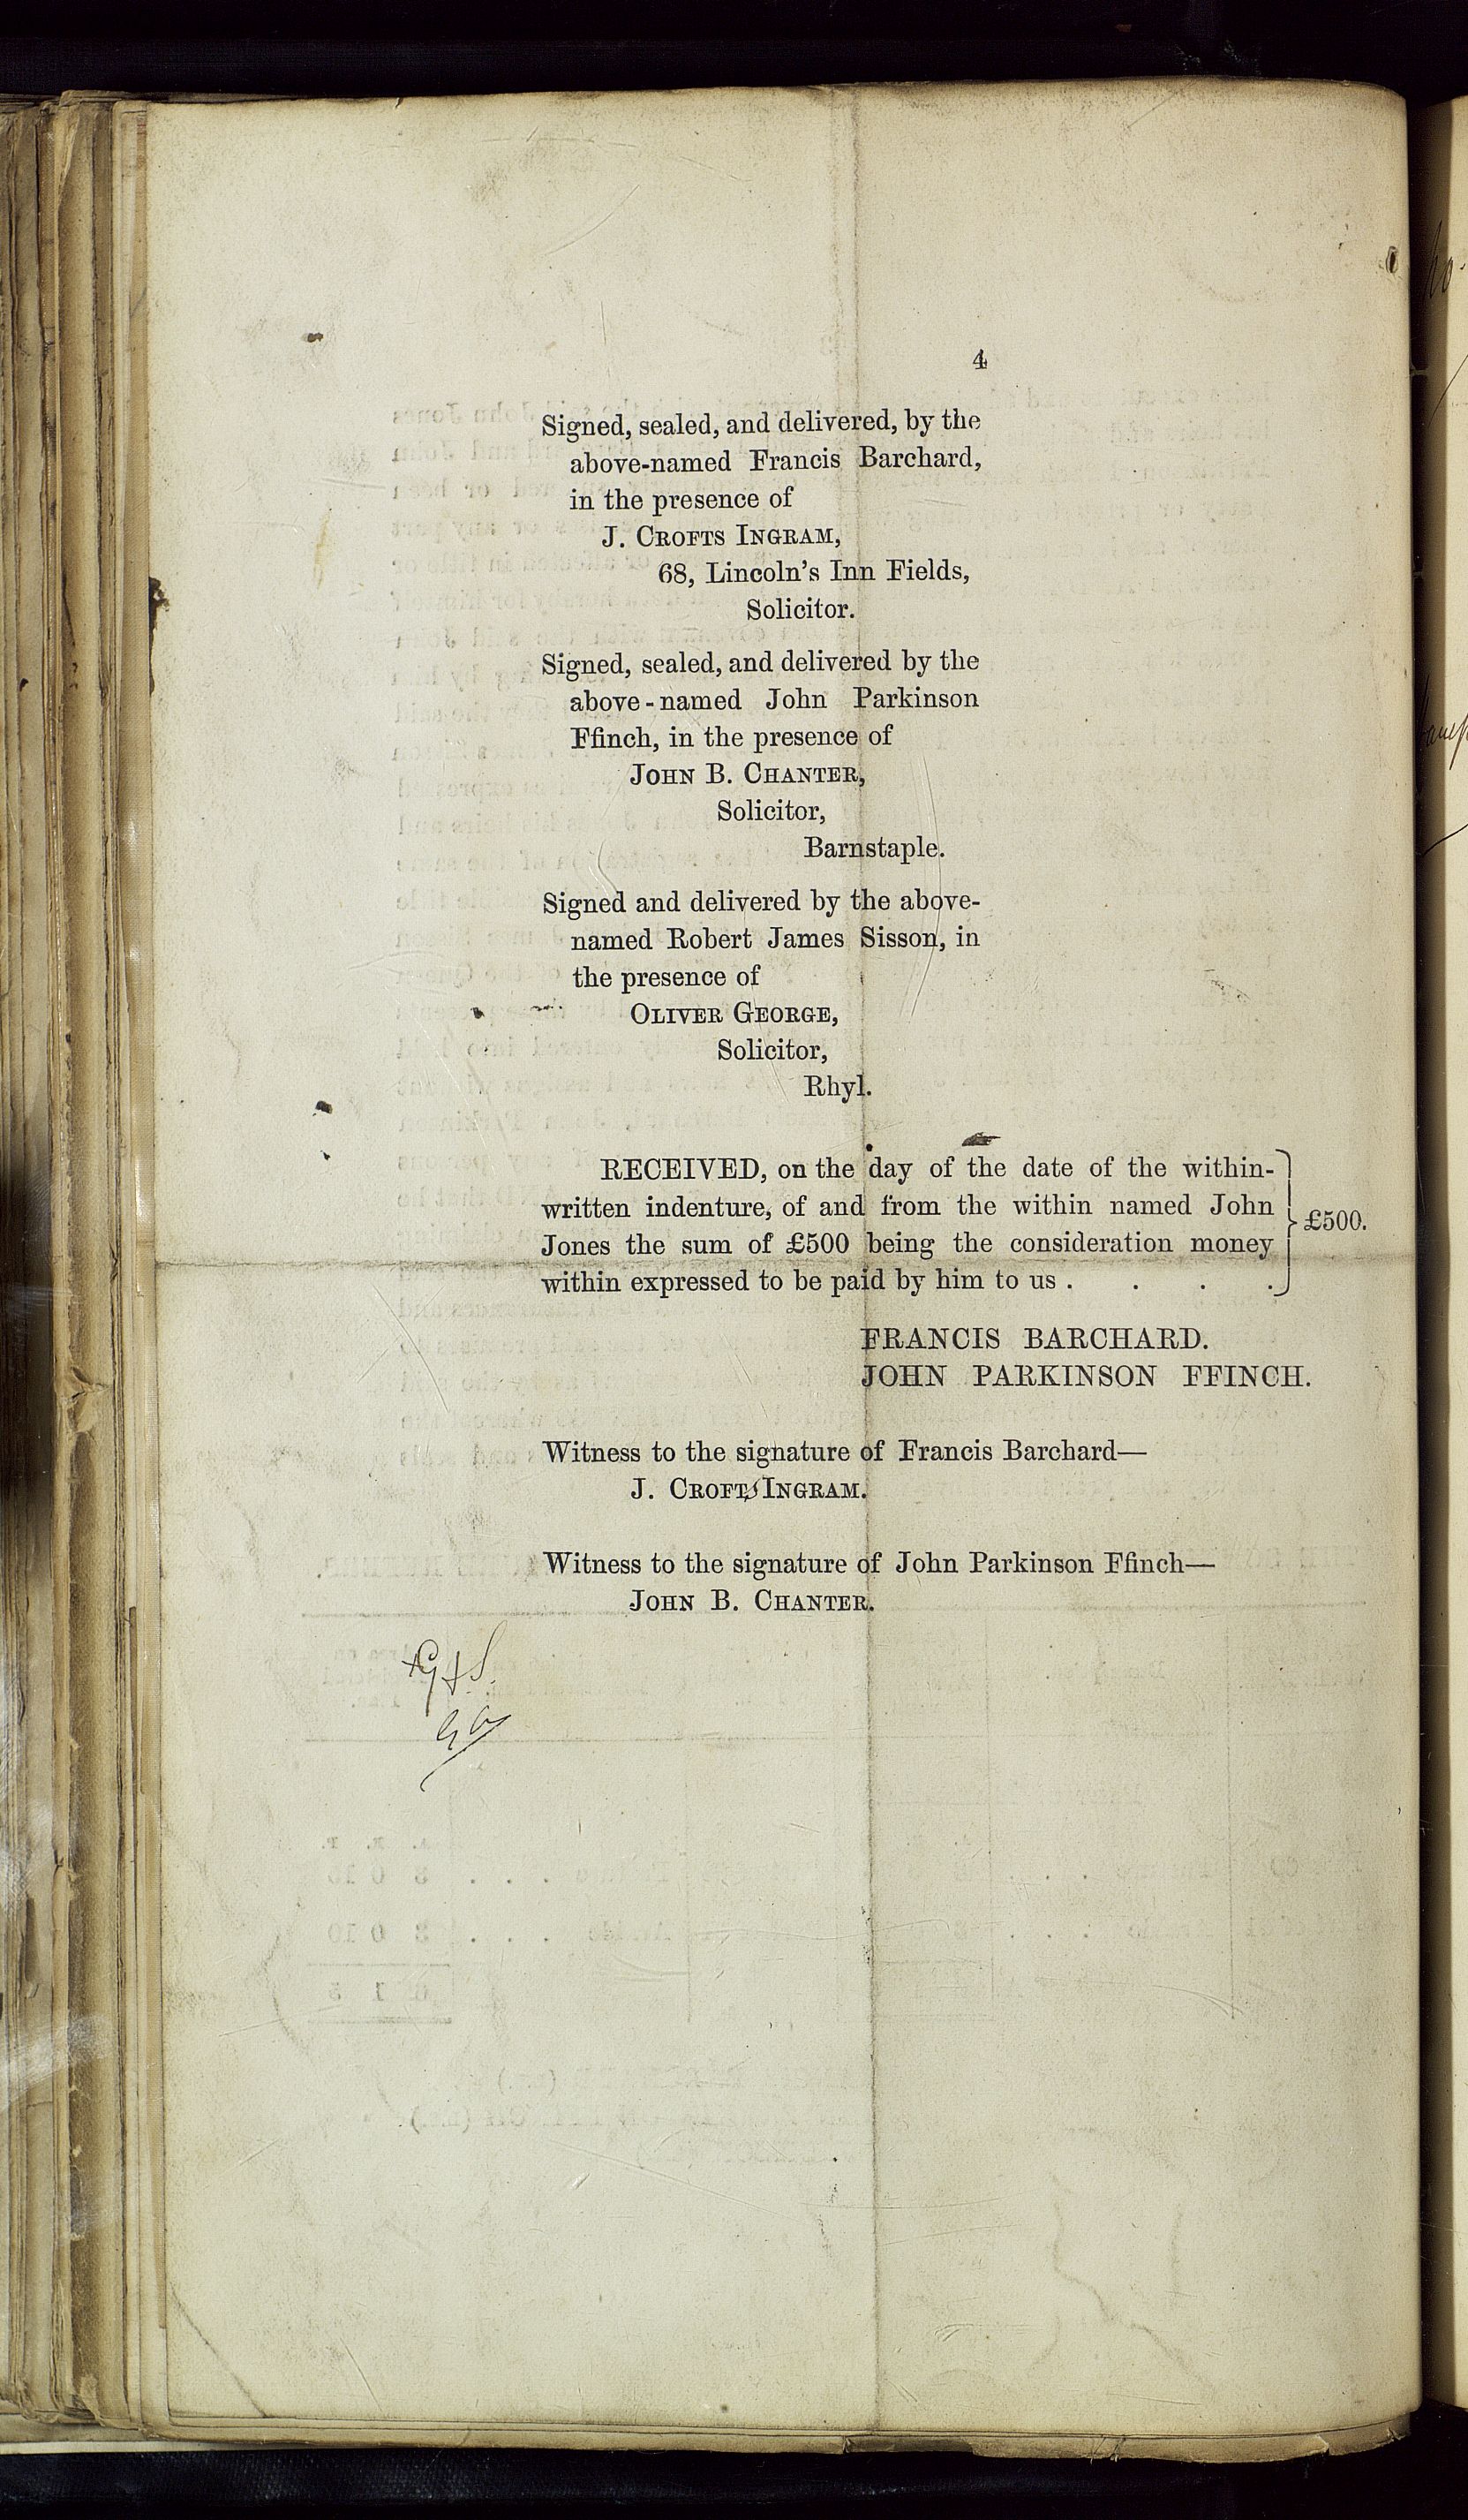 4
Signed, sealed, and delivered, by the
above-named Francis Barchard,
in the presence of
J. CROFTS INGRAM,
68, Lincoln's Inn Fields,
Solicitor.
Signed, sealed, and delivered by the
above-named John Parkinson
Ffinch, in the presence of
JOHN B. CHANTER,
Solicitor,
Barnstaple.
Signed and delivered by the above-
named Robert James Sisson, in
the presence of
OLIVER GEORGE,
Solicitor,
Rhyl.
RECEIVED, on the day of the date of the within-
written indenture, of and from the within named John
Jones the sum of £500 being the consideration money
within expressed to be paid by him to us . . . .
£500.
FRANCIS BARCHARD.
JOHN PARKINSON FFINCH.
Witness to the signature of Francis Barchard—
J. CROFTS INGRAM.
Witness to the signature of John Parkinson Ffinch—
JOHN B. CHANTER.